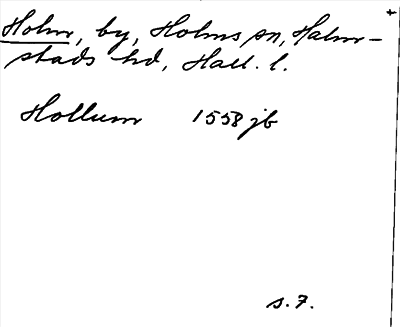 Holm, by, Holms sn, Halm-
stads hd, Hall. l.
Hollum 1558 jb
s. 7.